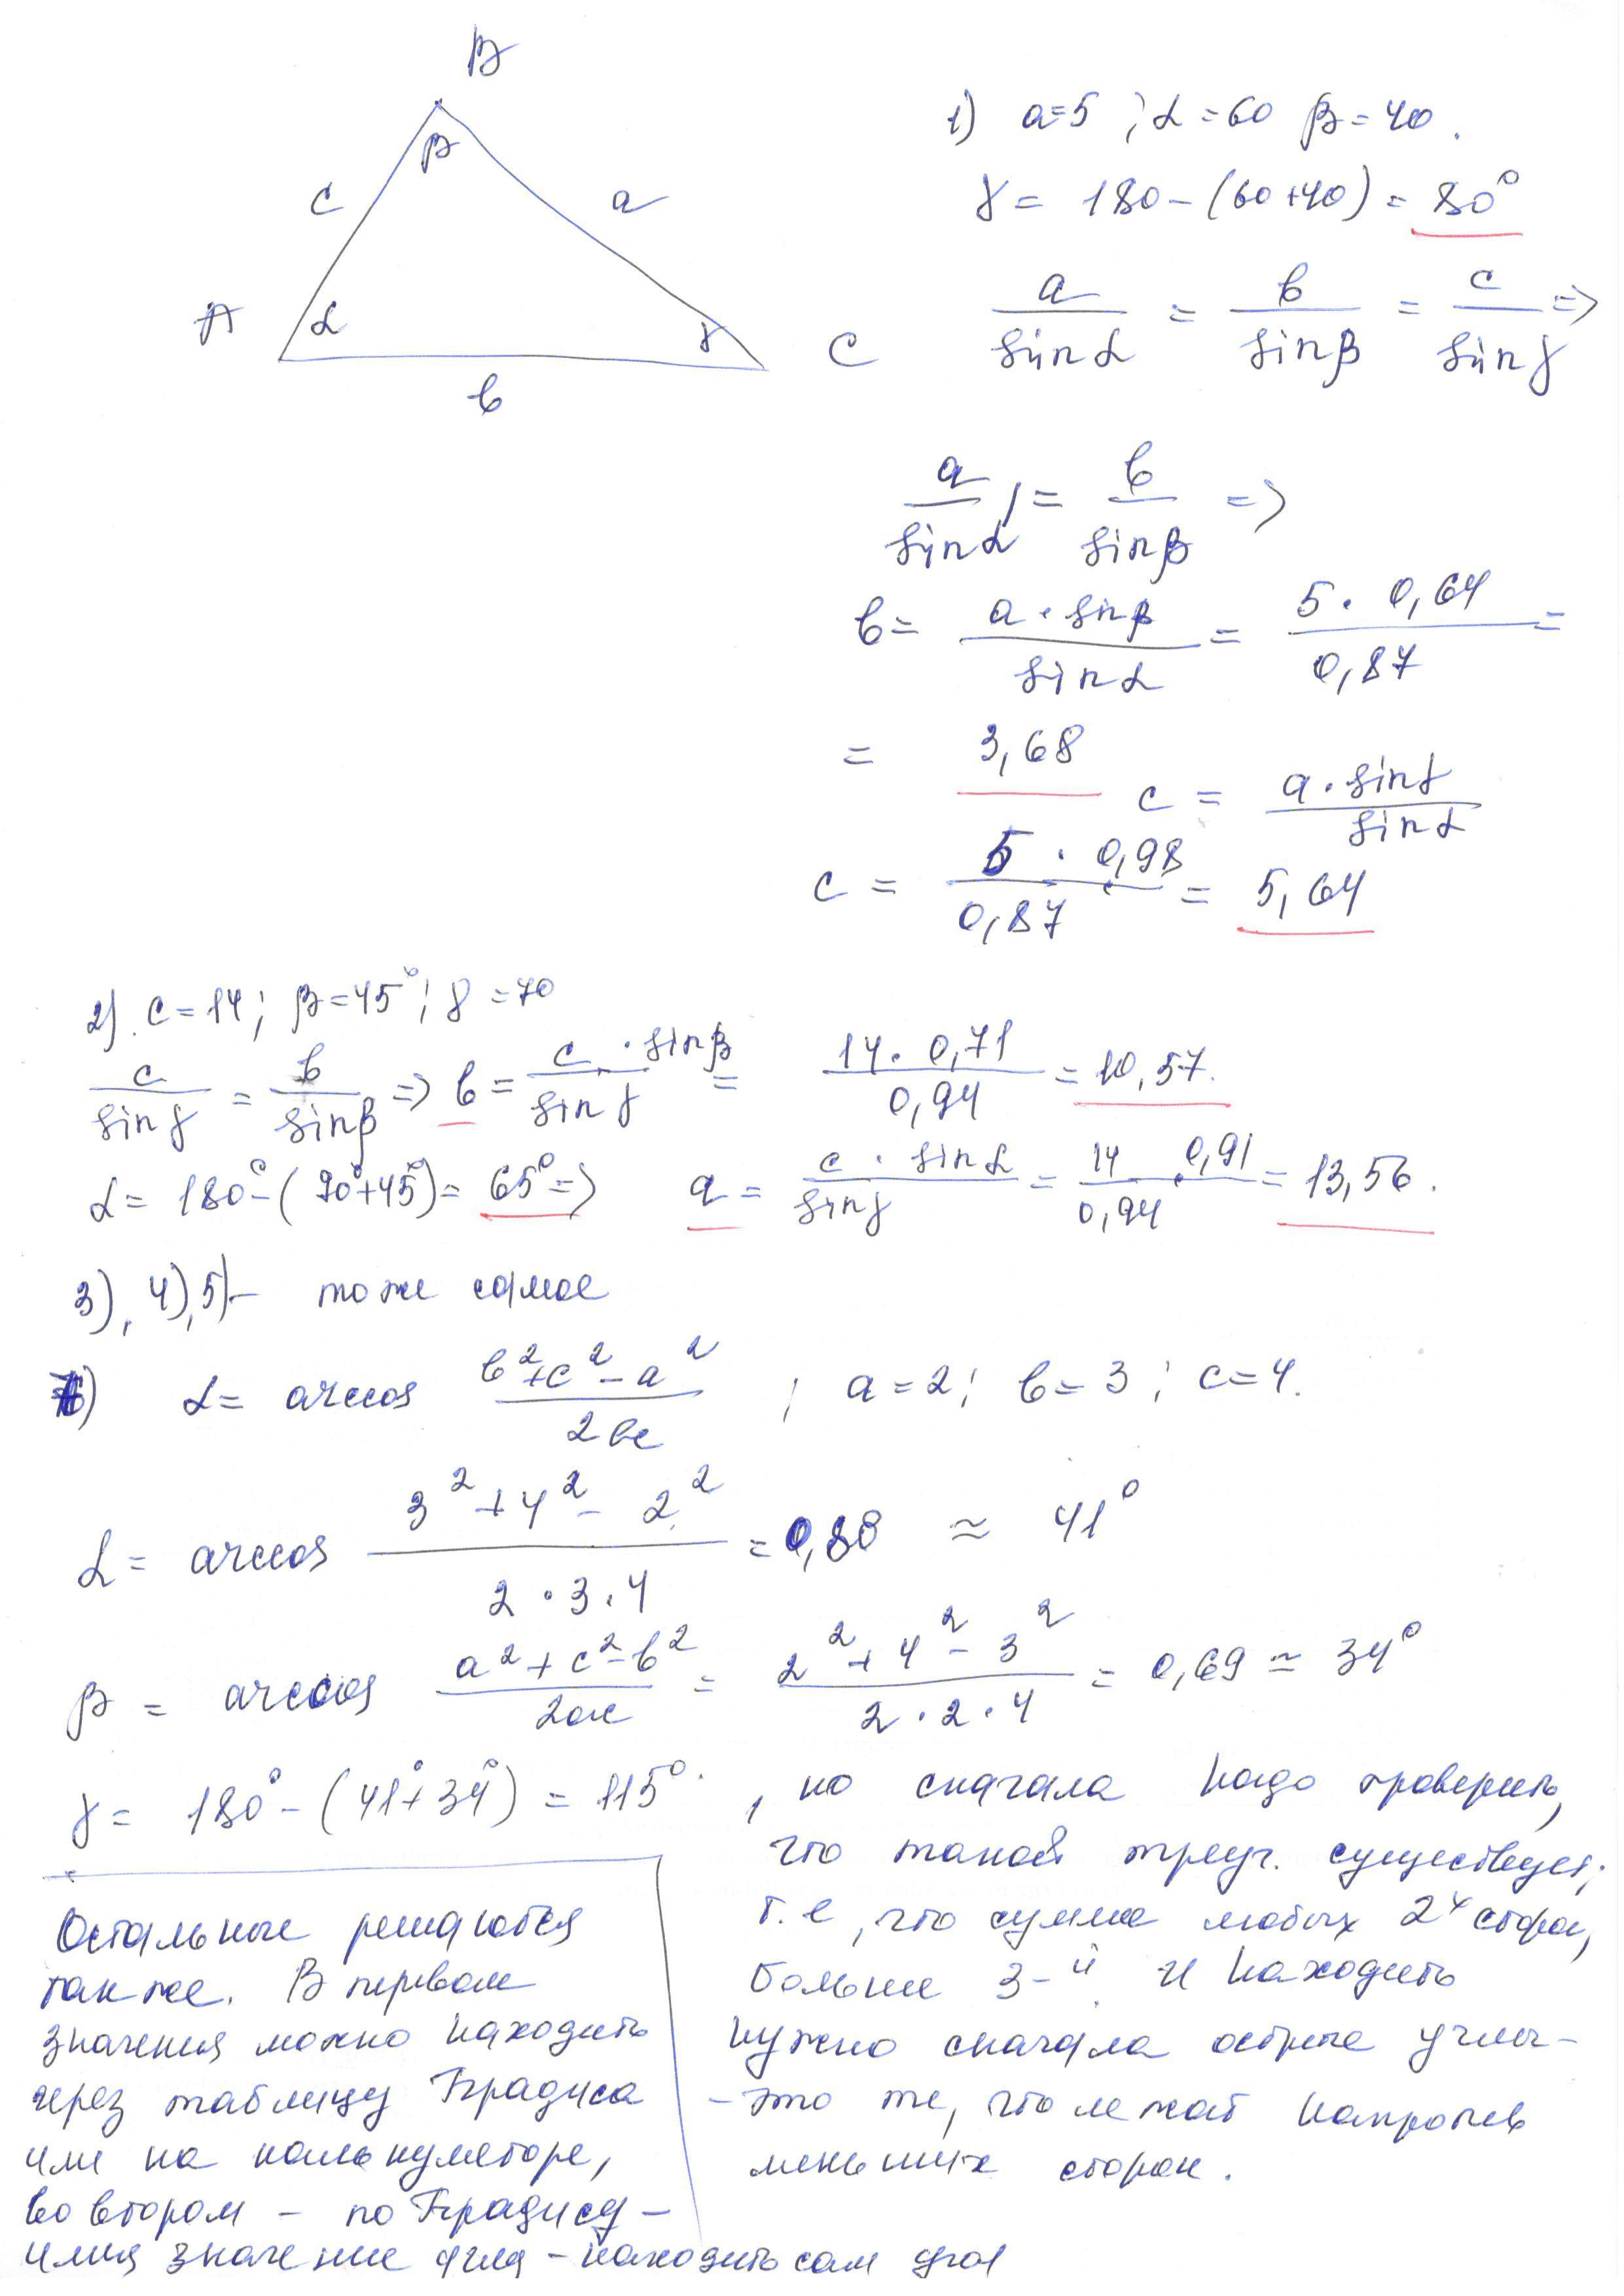 B
β
c
a
A
α
γ
C
b
1) a=5 ; α=60 β=40.
γ = 180-(60+40) = 80°
a/sinα = b/sinβ = c/sinγ =>
a/sinα = b/sinβ =>
b = a·sinβ/sinα = 5·0,64/0,87 =
= 3,68
c = a·sinγ/sinα
c = 5·0,98/0,87 = 5,64
2). c=14; β=45°; γ=70
c/sinγ = b/sinβ => b = c·sinβ/sinγ = 14·0,71/0,94 = 10,57.
α = 180°-(70°+45°) = 65° => a = c·sinα/sinγ = 14·0,91/0,94 = 13,56.
3), 4), 5)- то же самое
α = arccos b²+c²-a²/2bc ; a=2; b=3; c=4.
α = arccos 3²+4²-2²/2·3·4 = 0,88 ≈ 41°
β = arccos a²+c²-b²/2ac = 2²+4²-3²/2·2·4 = 0,69 ≈ 34°
γ = 180°-(41°+34°) = 115°.
, но сначала надо проверить,
что такой треуг. существует,
т.е, что сумма любых 2ˣ сторон,
больше 3-й. и находить
нужно сначала острые углы-
-это те, что лежат напротив
меньших сторон.
Остальные решаются
так же. В первом
значения можно находить
через таблицу Брадиса
или на калькуляторе,
во втором - по Брадису-
имея значение угла - находить сам угол